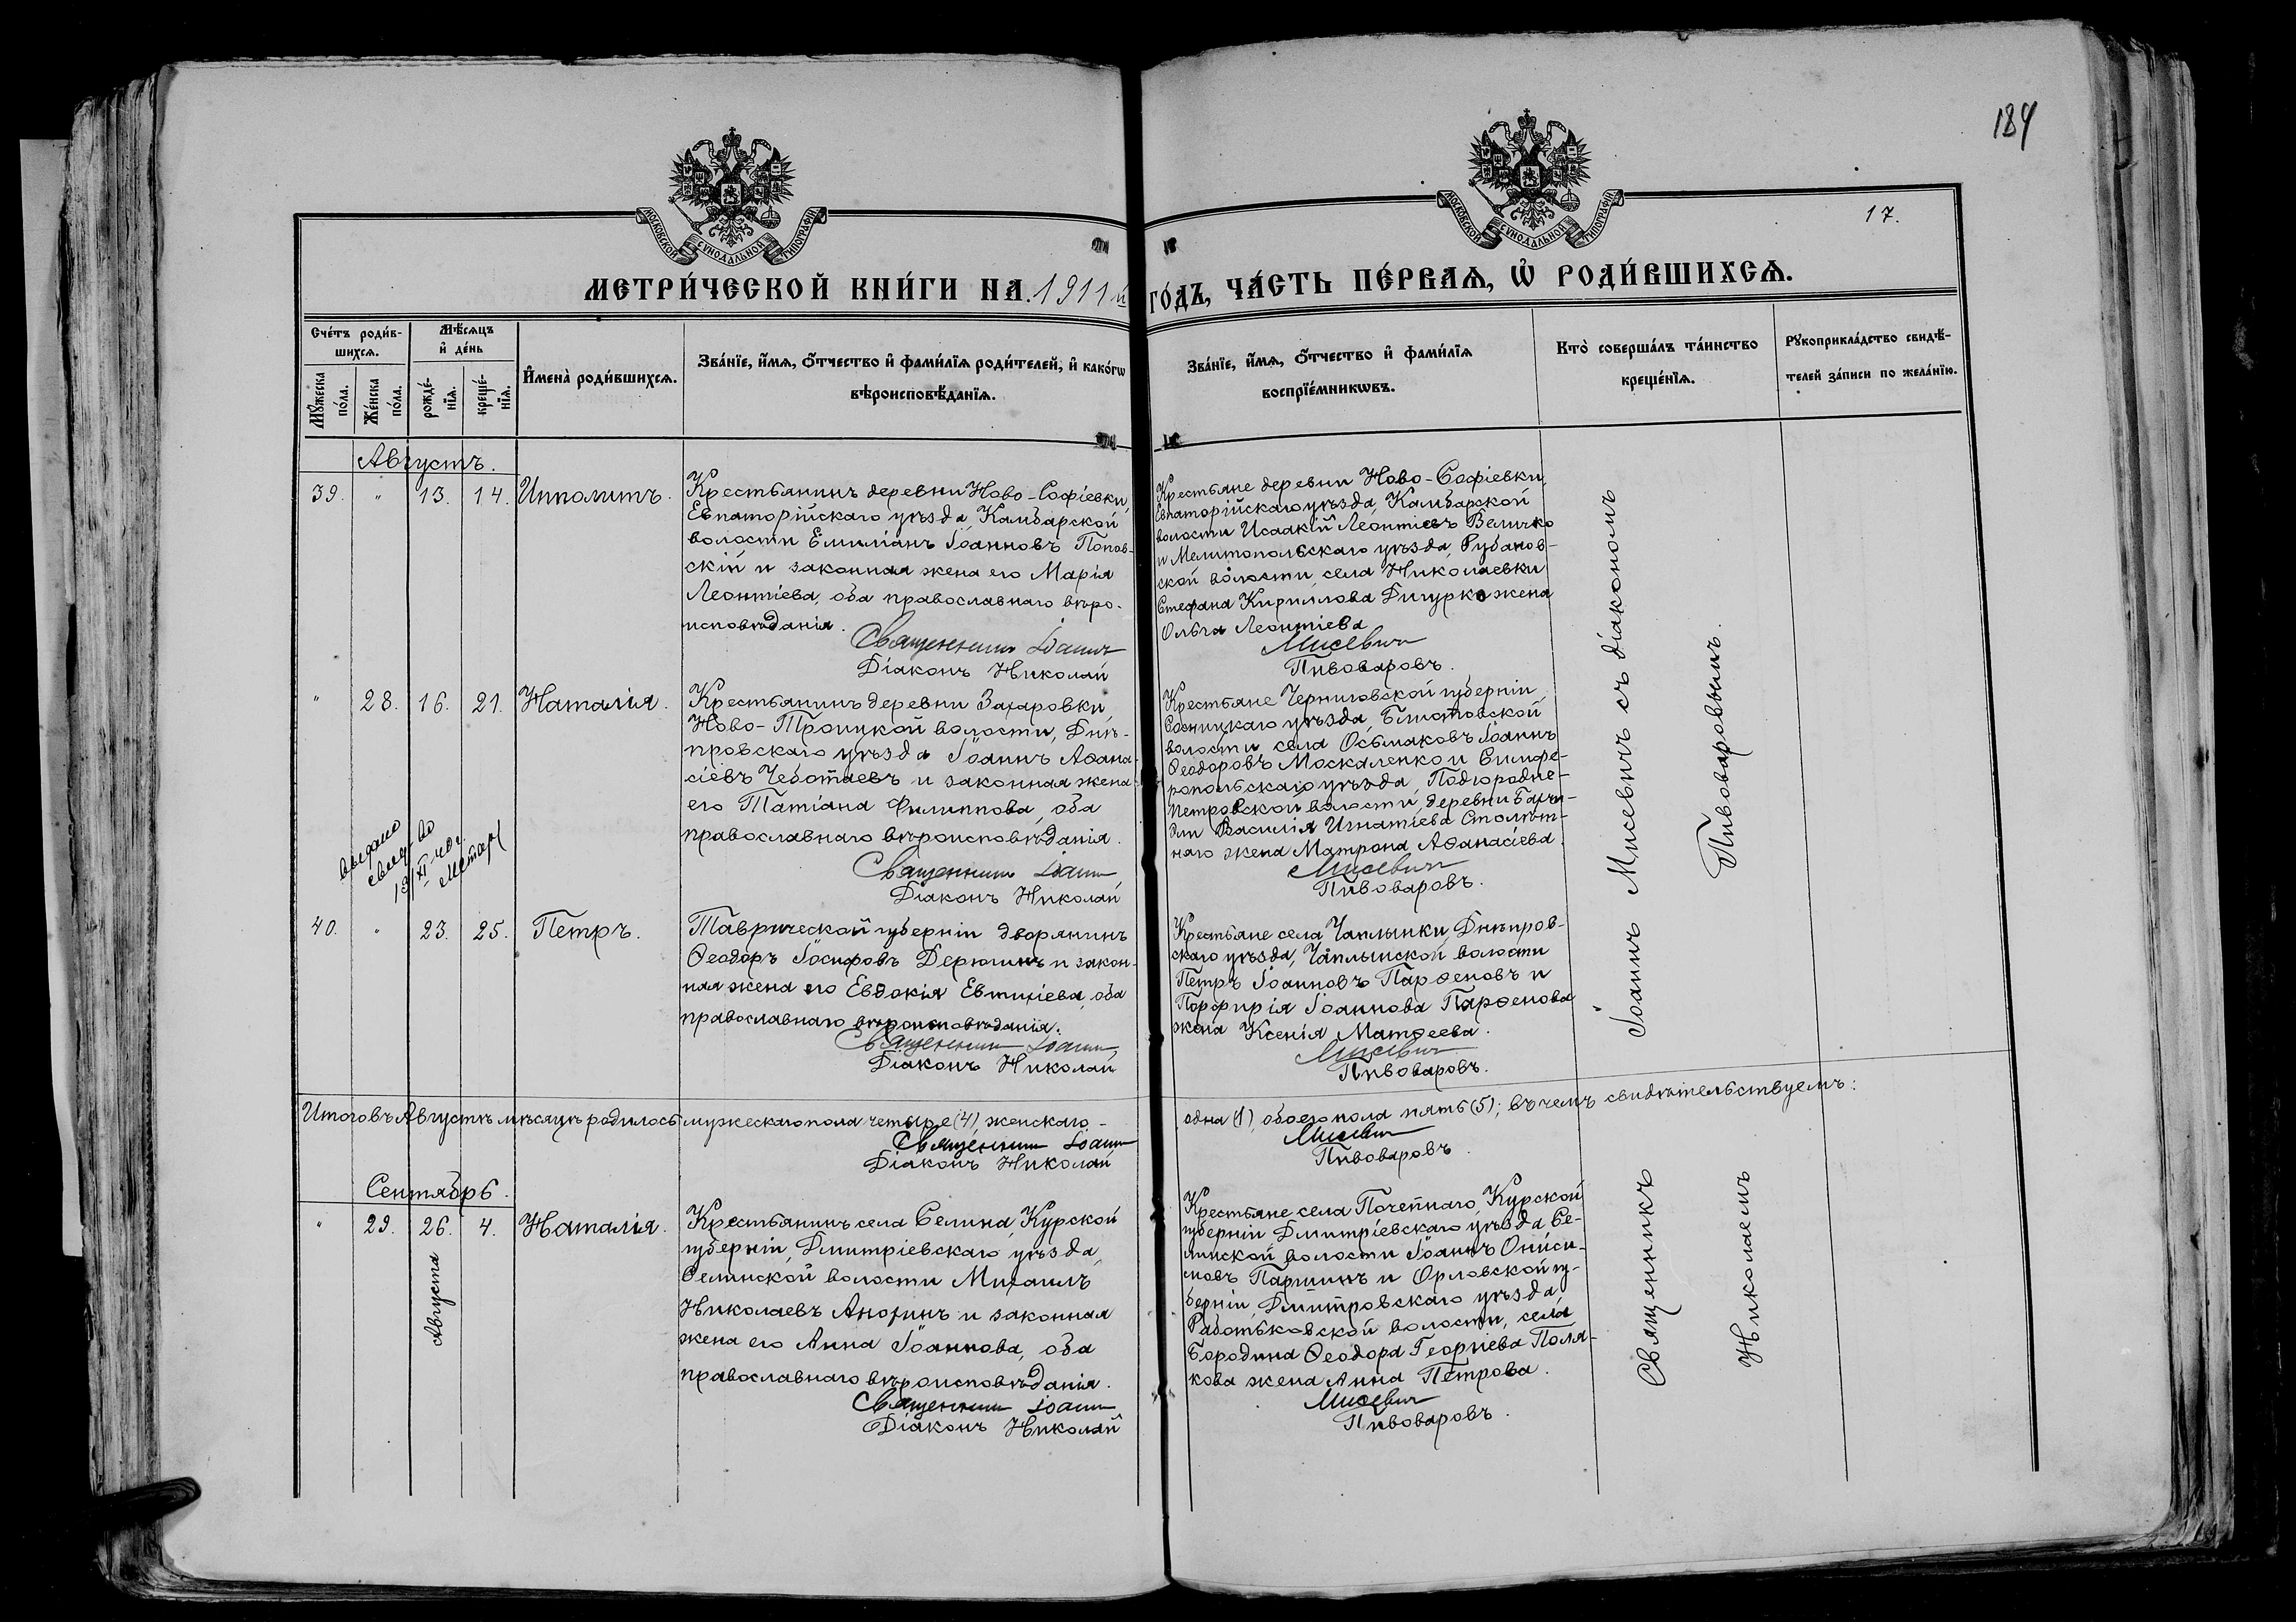 184
17.
МОСКОВСКОЙ СѴНОДАЛЬНОЙ ТИПОГРАФІИ
МОСКОВСКОЙ СѴНОДАЛЬНОЙ ТИПОГРАФІИ
МЕТРИ́ЧЕСКОЙ КНИ́ГИ НА 1911й ГО́ДЪ, ЧА́СТЬ ПЕ́РВАѦ, Ѡ҆ РОДИ́ВШИХСѦ.
Сче́тъ роди́в-
шихсѧ.
Мꙋ́жеска по́ла.
Же́нска по́ла.
Мѣ́сѧцъ
и҆ де́нь
рожде́-
нїѧ.
креще́-
нїѧ.
И҆мена̀ роди́вшихсѧ.
Зва́нїе, и҆́мѧ, ѻ҆́тчество и҆ фами́лїѧ роди́телей, и҆ како́гѡ
вѣроисповѣ́данїѧ.
Зва́нїе, и҆́мѧ, ѻ҆́тчество и҆ фами́лїѧ
воспрїе́мникѡвъ.
Кто̀ соверша́лъ та́инство
креще́нїѧ.
Рꙋкоприкла́дство свидѣ́-
телей за́писи по жела́нїю.
Августъ.
39. " 13. 14. Ипполитъ.
Крестьянинъ деревни Ново-Софіевки,
Евпаторійскаго уѣзда, Камбарской
волости Емиліанъ Іоанновъ Попов-
скій и законная жена его Марія
Леонтіева, оба православнаго вѣро-
исповѣданія.
Священникъ Іоаннъ
Діаконъ Николай
Крестьяне деревни Ново-Софіевки,
Евпаторійскаго уѣзда, Камбарской
волости Исаакій Леонтіевъ Величко
и Мелитопольскаго уѣзда, Рубанов-
ской волости, села Николаевки
Стефана Кириллова Дигурко жена
Ольга Леонтіева
Мисевич
Пивоваровъ.
" 28. 16. 21. Наталія.
Крестьянинъ деревни Захаровки,
Ново-Троицкой волости, Днѣ-
провскаго уѣзда Іоаннъ Аѳана-
сіевъ Чеботаевъ и законная жена
его Татіана Филиппова, оба
православнаго вѣроисповѣданія.
Священникъ Іоаннъ
Діаконъ Николай
выдано
свид-во
Крестьяне Черниговской губерніи,
Сосницкаго уѣзда,
волости, села Осьмаковъ Іоаннъ
Ѳеодоровъ Москаленко и Симфе-
ропольскаго уѣзда, Подгородне-
Петровской волости, деревни
Василія Игнатіева Столѣт-
наго жена Матрона Аѳанасіева.
Мисевич
Пивоваровъ.
40. " 23. 25. Петръ.
Таврической губерніи дворянинъ
Ѳеодоръ Іосифовъ Дерюгинъ и закон-
ная жена его Евдокія Евтихіева, оба
православнаго вѣроисповѣданія.
Священникъ Іоаннъ
Діаконъ Николай
Крестьяне села Чаплынки, Днѣпров-
скаго уѣзда, Чаплынской волости
Петръ Іоанновъ Парѳеновъ и
Порфирія Іоаннова Парѳенова
жена Ксенія Матѳеева.
Мисевич
Пивоваровъ.
Іоаннъ Мисевичъ съ діакономъ
Пивоваровымъ.
Итого въ Августѣ мѣсяцѣ родилось мужескаго пола четыре (4), женскаго - одна (1), обоего пола пять (5); въ чемъ свидѣтельствуемъ:
Священникъ Іоаннъ Мисевич
Діаконъ Николай Пивоваровъ
Сентябрь.
" 29. 26. 4. Наталія.
Августа
Крестьянинъ села Селина, Курской
губерніи, Дмитріевскаго уѣзда,
Селинской волости Михаилъ
Николаевъ Анохинъ и законная
жена его Анна Іоаннова, оба
православнаго вѣроисповѣданія.
Священникъ Іоаннъ
Діаконъ Николай
Крестьяне села Почепнаго, Курской
губерніи Дмитріевскаго уѣзда Се-
линской волости Іоаннъ Ониси-
мовъ Паршинъ и Орловской гу-
берніи, Дмитровскаго уѣзда,
Работьковской волости, села
Бородина Ѳеодора Георгіева Поля-
кова жена Анна Петрова.
Мисевич
Пивоваровъ.
Священникъ
Николаемъ